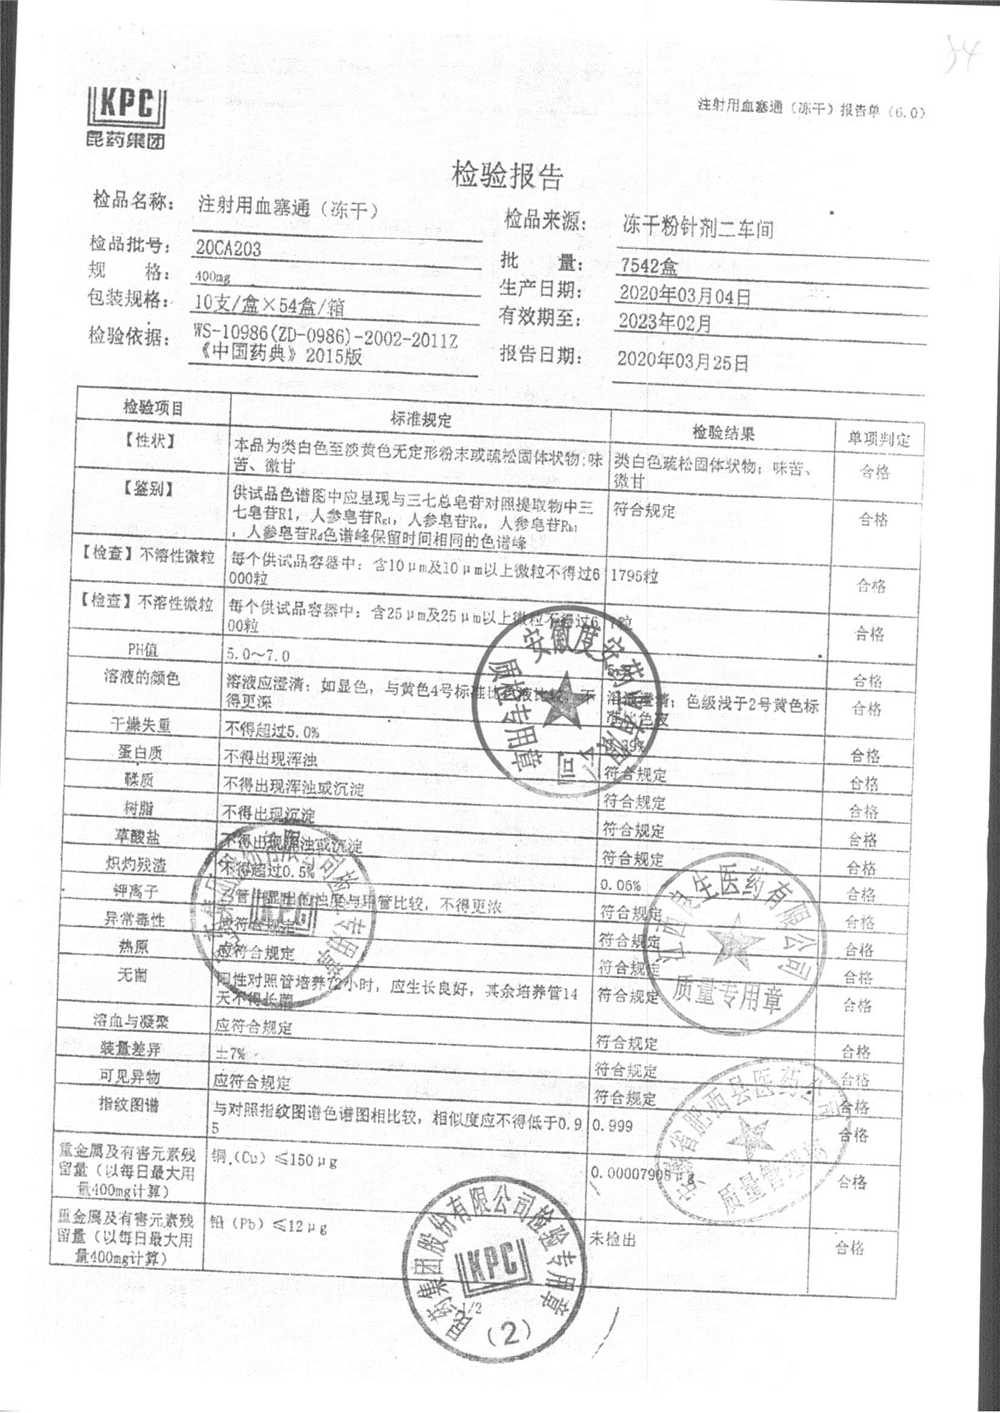 54
KPC
昆药集团
注射用血塞通（冻干）报告单（6.0）
检验报告
检品名称： 注射用血塞通（冻干）
检品来源： 冻干粉针剂二车间
检品批号： 20CA203
批 量： 7542盒
规 格： 400mg
生产日期： 2020年03月04日
包装规格： 10支/盒×54盒/箱
有效期至： 2023年02月
检验依据： WS-10986(ZD-0986)-2002-2011Z
《中国药典》2015版
报告日期： 2020年03月25日
检验项目 标准规定 检验结果 单项判定
【性状】 本品为类白色至淡黄色无定形粉末或疏松固体状物；味苦、微甘 类白色疏松固体状物；味苦、微甘 合格
【鉴别】 供试品色谱图中应呈现与三七总皂苷对照提取物中三七皂苷R1，人参皂苷Rg1，人参皂苷Re，人参皂苷Rb1，人参皂苷Rd色谱峰保留时间相同的色谱峰 符合规定 合格
【检查】不溶性微粒 每个供试品容器中：含10μm及10μm以上微粒不得过6000粒 1795粒 合格
【检查】不溶性微粒 每个供试品容器中：含25μm及25μm以上微粒不得过600粒 粒 合格
PH值 5.0～7.0 合格
溶液的颜色 溶液应澄清；如显色，与黄色4号标准比色液比较，不得更深 溶液澄清；色级浅于2号黄色标准比色液 合格
干燥失重 不得超过5.0% 合格
蛋白质 不得出现浑浊 符合规定 合格
鞣质 不得出现浑浊或沉淀 符合规定 合格
树脂 不得出现沉淀 符合规定 合格
草酸盐 不得出现浑浊或沉淀 符合规定 合格
炽灼残渣 不得超过0.5% 0.06% 合格
钾离子 管中显出的浊度与 管比较，不得更浓 符合规定 合格
异常毒性 应符合规定 符合规定 合格
热原 应符合规定 符合规定 合格
无菌 阳性对照管培养72小时，应生长良好，其余培养管14天不得长菌 符合规定 合格
溶血与凝聚 应符合规定 符合规定 合格
装量差异 ±7% 符合规定 合格
可见异物 应符合规定 符合规定 合格
指纹图谱 与对照指纹图谱色谱图相比较，相似度应不得低于0.95 0.999 合格
重金属及有害元素残留量（以每日最大用量400mg计算） 铜（Cu）≤150μg 0.00007908μg 合格
重金属及有害元素残留量（以每日最大用量400mg计算） 铅（Pb）≤12μg 未检出 合格
质检专用章
KPC
质量专用章
安徽省肥西县医药公司
质量管理
昆药集团股份有限公司检验专用章
KPC
（2）
1/2